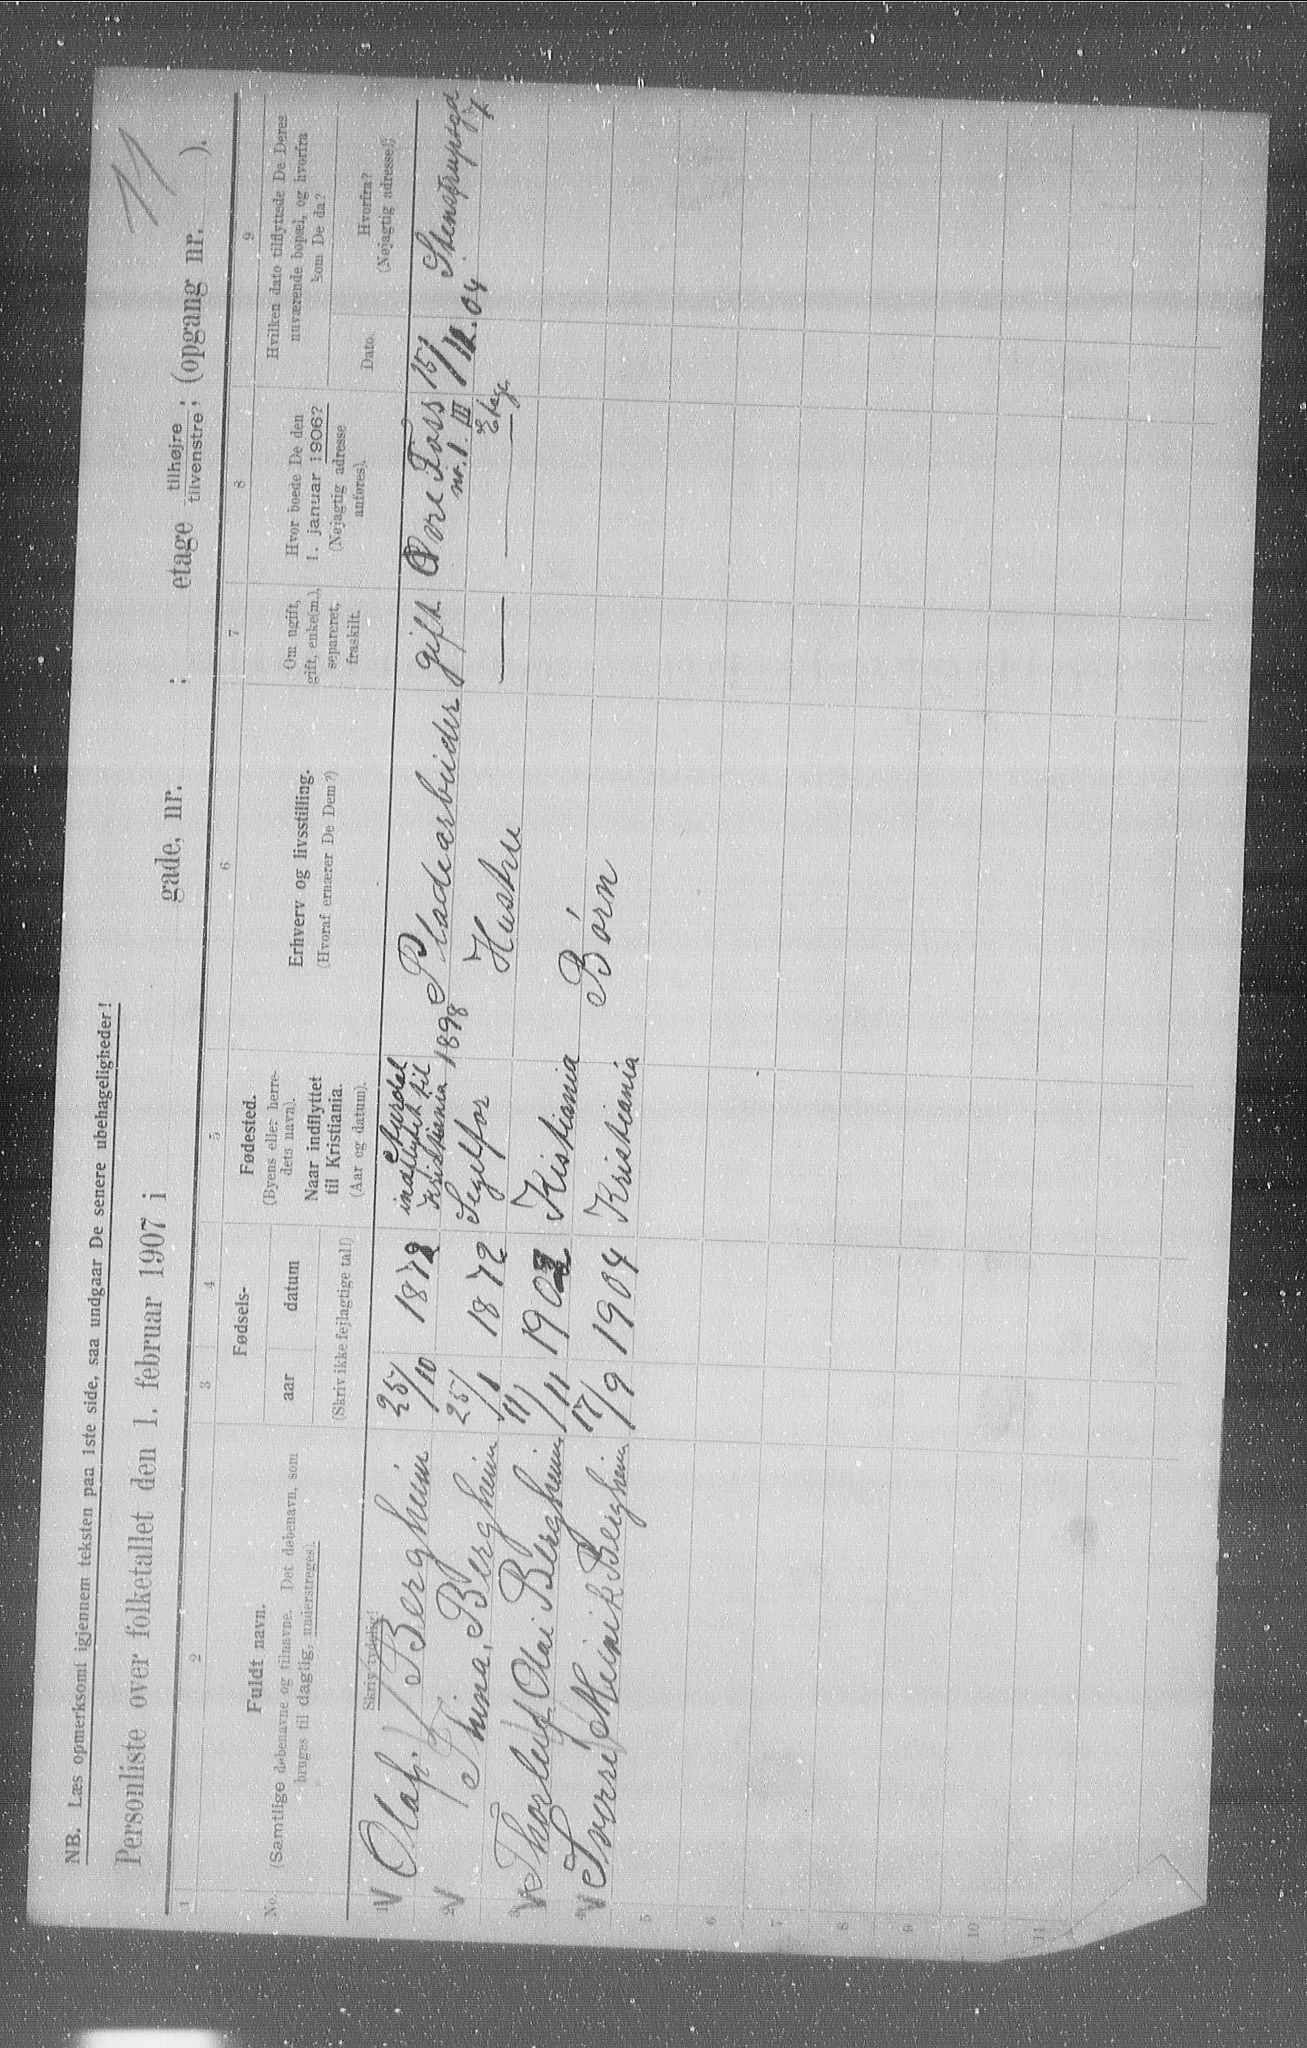 NB. Læs opmerksomt igjennem teksten paa 1ste side, saa undgaar De senere ubehageligheder!
11
Personliste over folketallet den 1. februar 1907 i gade, nr. ; etage tilhøjre tilvenstre ; (opgang nr. ).
1 2 3 4 5 6 7 8 9
No.
Fuldt navn.
(Samtlige døbenavne og tilnavne. Det døbenavn, som
bruges til daglig, understreges).
Skriv tydelig!
Fødsels-
aar datum
(Skriv ikke fejlagtige tal!)
Fødested.
(Byens eller herre-
dets navn).
Naar indflyttet
til Kristiania.
(Aar og datum).
Erhverv og livsstilling.
(Hvoraf ernærer De Dem?)
Om ugift,
gift, enke(m.),
separeret,
fraskilt.
Hvor boede De den
1. januar 1906?
(Nøjagtig adresse
anføres).
Hvilken dato tilflyttede De Deres
nuværende bopæl, og hvorfra
kom De da?
Dato.
Hvorfra?
(Nøjagtig adresse!)
1 V Olaf. Bergheim 25/10 1872 indflyttet til Kristiania 1898 Pladearbeider gift Øvre Foss nr. 1. III Etage 15/12.04 Stenstrupsgd 7
2 V Thina. Bergheim 25/1 1872 Segelfor Hustru —
3 V Thorleif Olai Bergheim 11/11 Kistiania
4 V Sverre Heinrik Bergheim 17/9 1904 Kristiania Børn
5
6
7
8
9
10
11